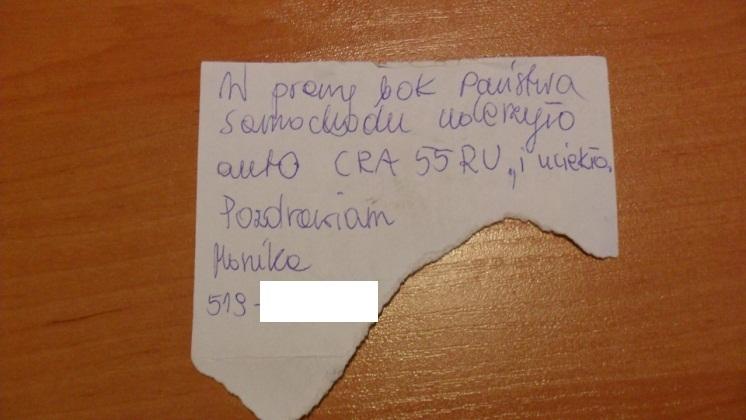 W prawy bok Państwa
samochodu uderzyło
auto CRA 55RU „i uciekło.
Pozdrawiam
Monika
519-